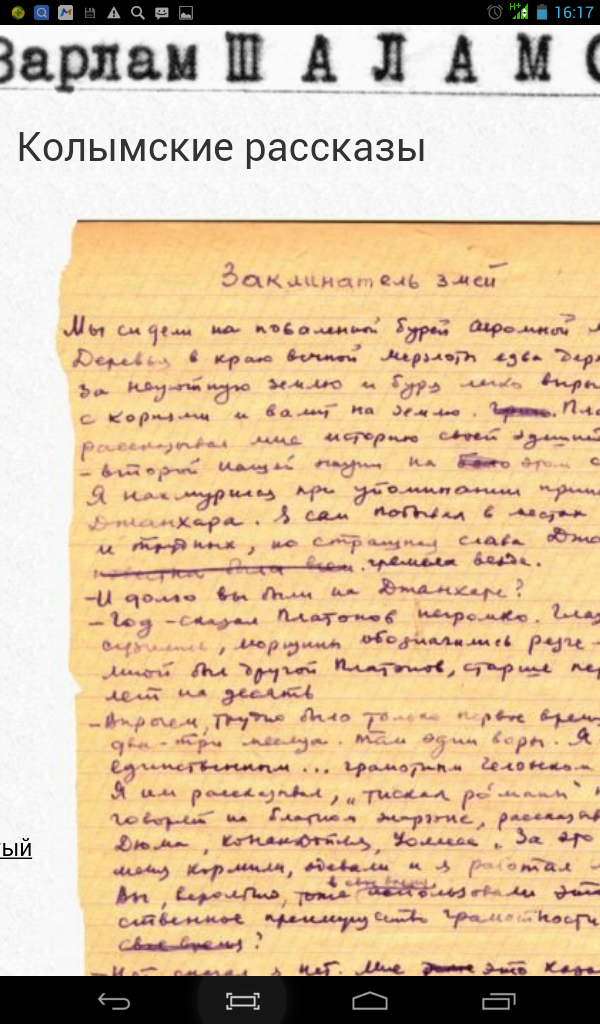 16:17
Варлам ШАЛАМО
Колымские рассказы
Заклинатель змей
Мы сидели на поваленной бурей огромной
Деревья в краю вечной мерзлоты едва держ
за неуютную землю и буря легко выры
с корнями и валит на землю. Пла
рассказывал мне историю своей здешней
- второй нашей жизни на этом с
Я нахмурился при упоминании прии
Джанхара. Я сам побывал в местах
и трудных, но страшная слава Джа
гремела везде.
- И долго вы были на Джанхаре?
- Год - сказал Платонов негромко. Глаз
сузились, морщины обозначились резче -
мной был другой Платонов, старше пер
лет на десять
- Впрочем, трудно было только первое врем
два-три месяца. Там одни воры. Я
единственным... грамотным человеком
Я им рассказывал, „тискал рóманы"
говорят на блатном жаргоне, рассказыв
Дюма, Конан Дойля, Уоллеса. За это
меня кормили, одевали и я работал
Вы, вероятно, тоже в свое время использовали это
ственное преимущество грамотности
свое время?
- Нет сказал я нет. Мне это каза
тый